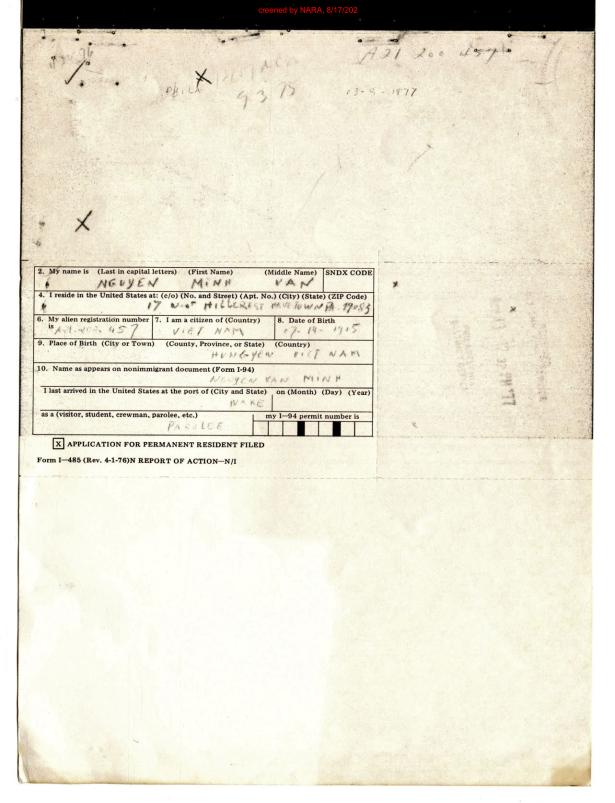 creened by NARA, 8/17/202
A21 200 457
PHILA
9 3 75
03-9-1977
2. My name is (Last in capital letters) (First Name) (Middle Name) SNDX CODE
NGUYEN MINH VAN
4. I reside in the United States at: (c/o) (No. and Street) (Apt. No.) (City) (State) (ZIP Code)
17 HILLCREST PA. 19083
6. My alien registration number is 7. I am a citizen of (Country) 8. Date of Birth
457 VIET NAM 07-14-1905
9. Place of Birth (City or Town) (County, Province, or State) (Country)
HUNG-YEN VIET NAM
10. Name as appears on nonimmigrant document (Form I-94)
NGUYEN VAN MINH
I last arrived in the United States at the port of (City and State) on (Month) (Day) (Year)
WAKE
as a (visitor, student, crewman, parolee, etc.) my I-94 permit number is
PAROLEE
X APPLICATION FOR PERMANENT RESIDENT FILED
Form I-485 (Rev. 4-1-76)N REPORT OF ACTION-N/I